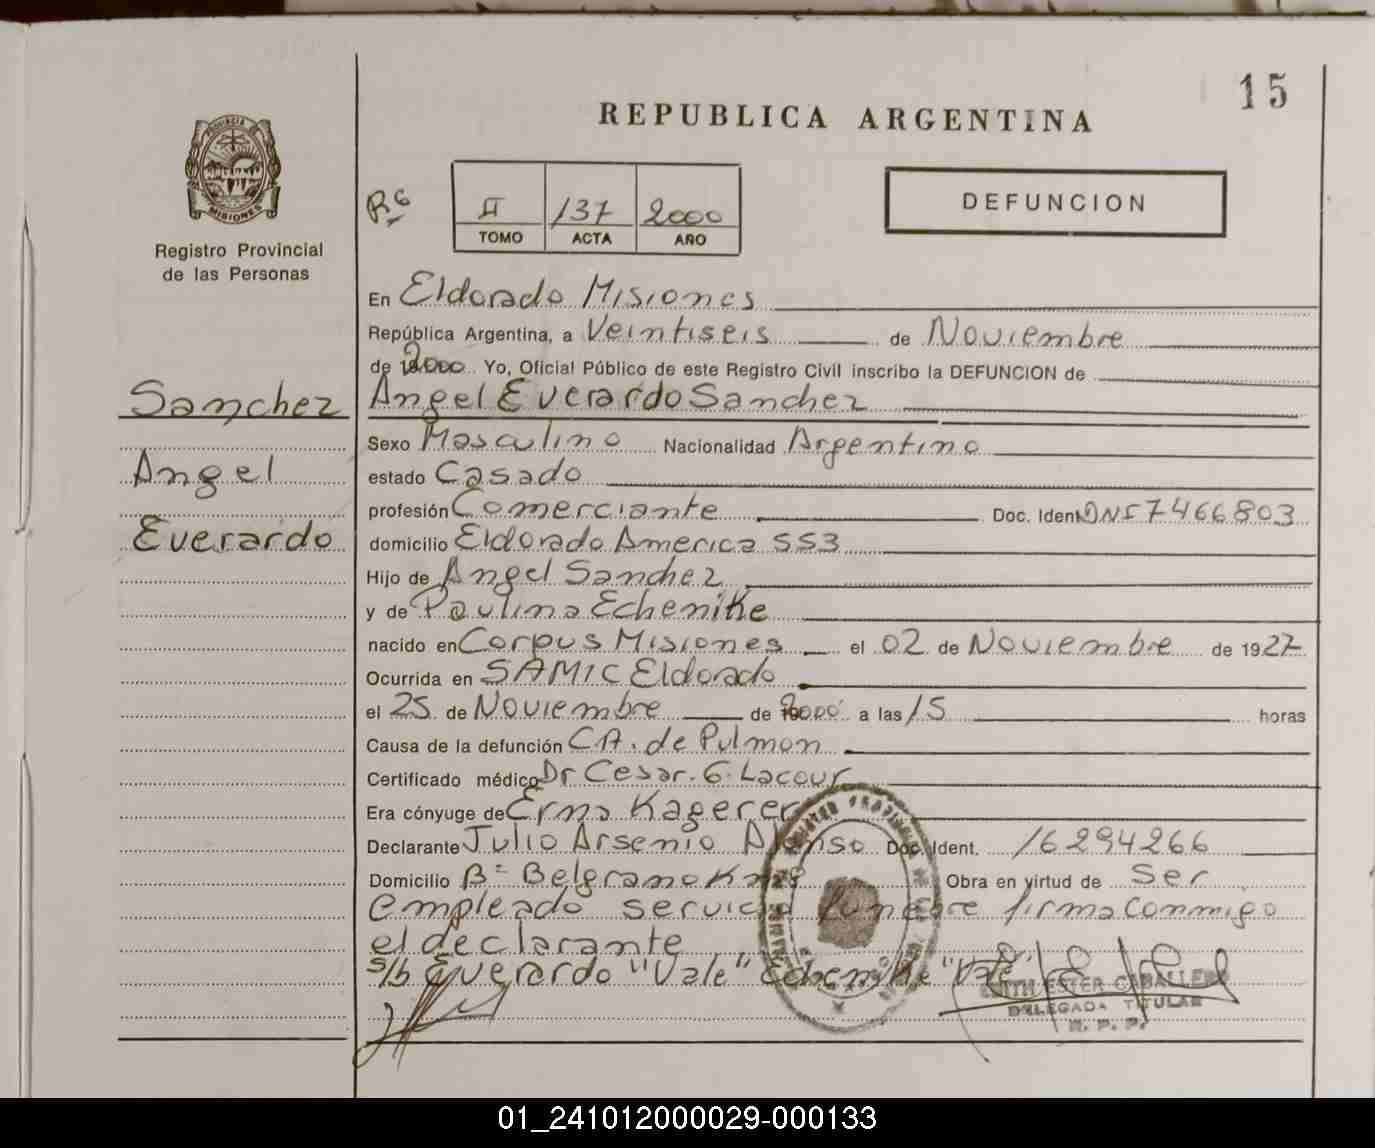 15
REPUBLICA ARGENTINA
PROVINCIA DE
MISIONES
Registro Provincial
de las Personas
II 137 2000
TOMO ACTA AÑO
DEFUNCION
En Eldorado Misiones
República Argentina, a Veintiseis de Noviembre
de 2000 Yo, Oficial Público de este Registro Civil inscribo la DEFUNCION de
Sanchez
Angel
Everardo
Angel Everardo Sanchez
Sexo Masculino Nacionalidad Argentino
estado Casado
profesión Comerciante Doc. Ident. DNI 7466803
domicilio Eldorado America 553
Hijo de Angel Sanchez
y de Paulina Echenike
nacido en Corpus Misiones el 02 de Noviembre de 1927
Ocurrida en SAMIC Eldorado
el 25 de Noviembre de 2000 a las 15 horas
Causa de la defunción CA. de Pulmon
Certificado médico Dr Cesar. G. Lacour
Era cónyuge de Erma Kagerer
Declarante Julio Arsenio Alonso Doc. Ident. 16294266
Domicilio Bº Belgrano Km Obra en virtud de Ser
empleado servicio funebre firma conmigo
el declarante
s/b Everardo "Vale" Echenike "Vale"
ESTER CABALLERO
DELEGADA TITULAR
R. P. P.
01_241012000029-000133